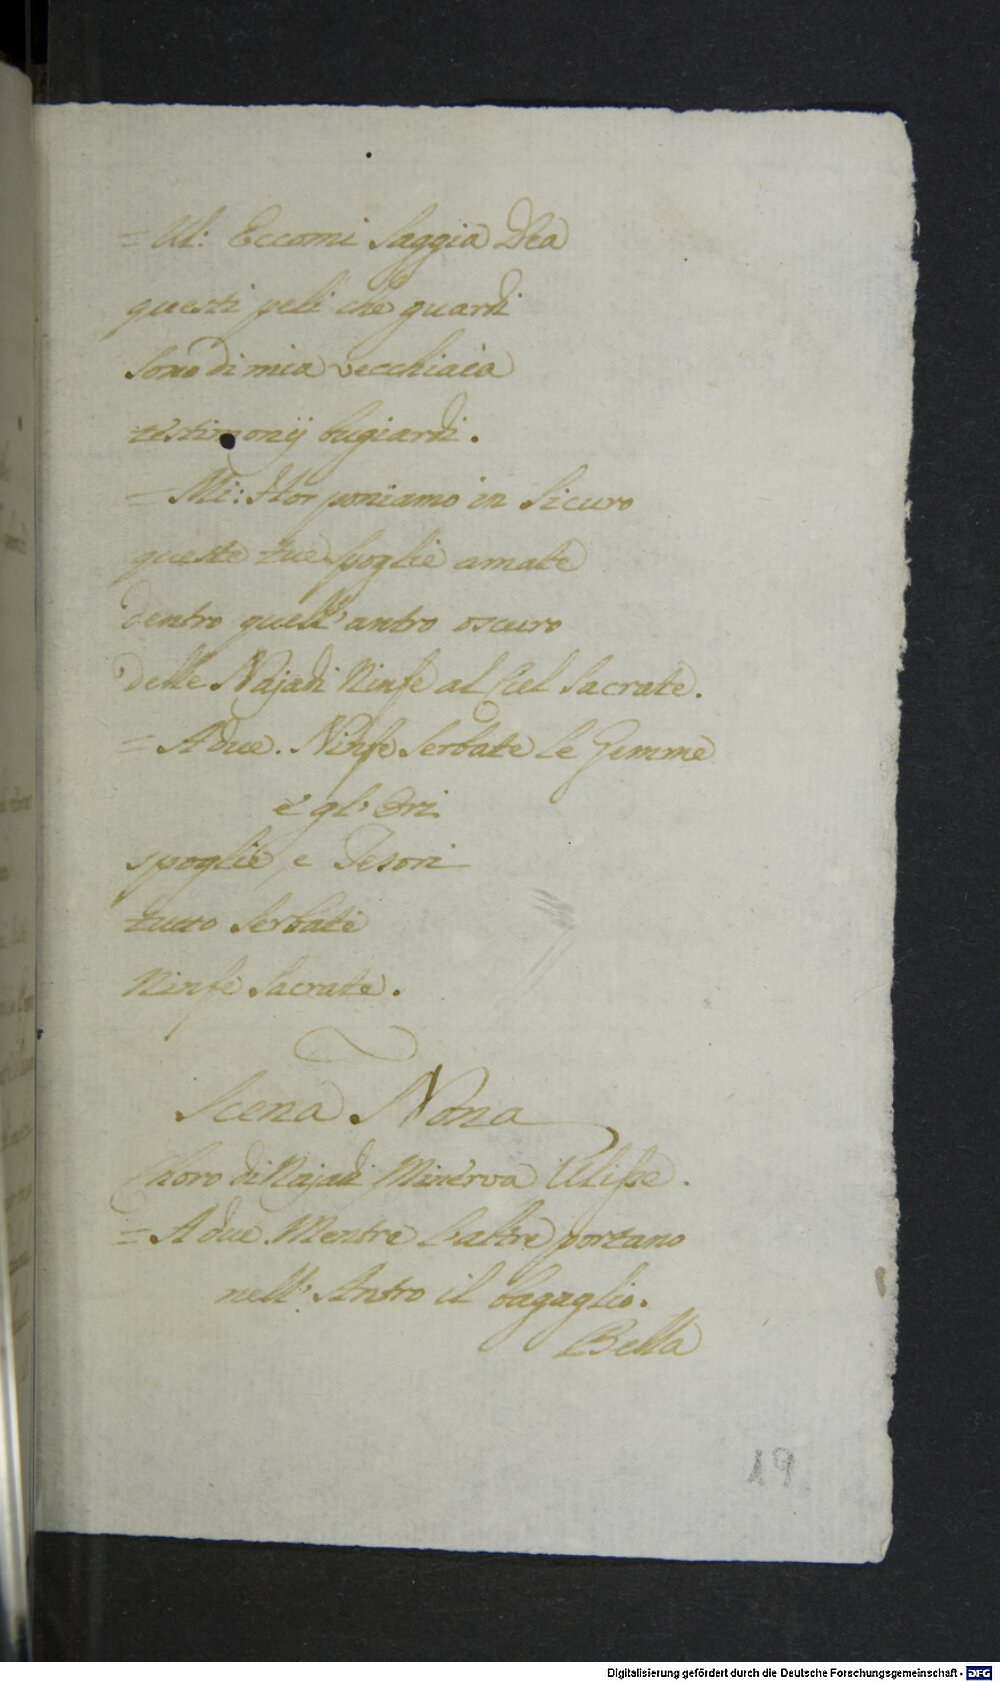 = Ul: Eccomi Saggia Dea
questi peli che guardi
Sono di mia vecchiaia
testimonij bugiardi.
= Mi: Hor poniamo in Sicuro
queste tue spoglie amate
dentro quell'antro oscuro
delle Najadi Ninfe al Ciel Sacrate.
= A due. Ninfe Serbate le Gemme
e gl'Ori
spoglie, e Tesori
tutto Serbate
Ninfe Sacrate.
Scena Nona
Choro di Najadi Minerva Ulisse.
= A due. Mentre l'altre portano
nell'Antro il bagaglio.
Bella
19
Digitalisierung gefördert durch die Deutsche Forschungsgemeinschaft - DFG